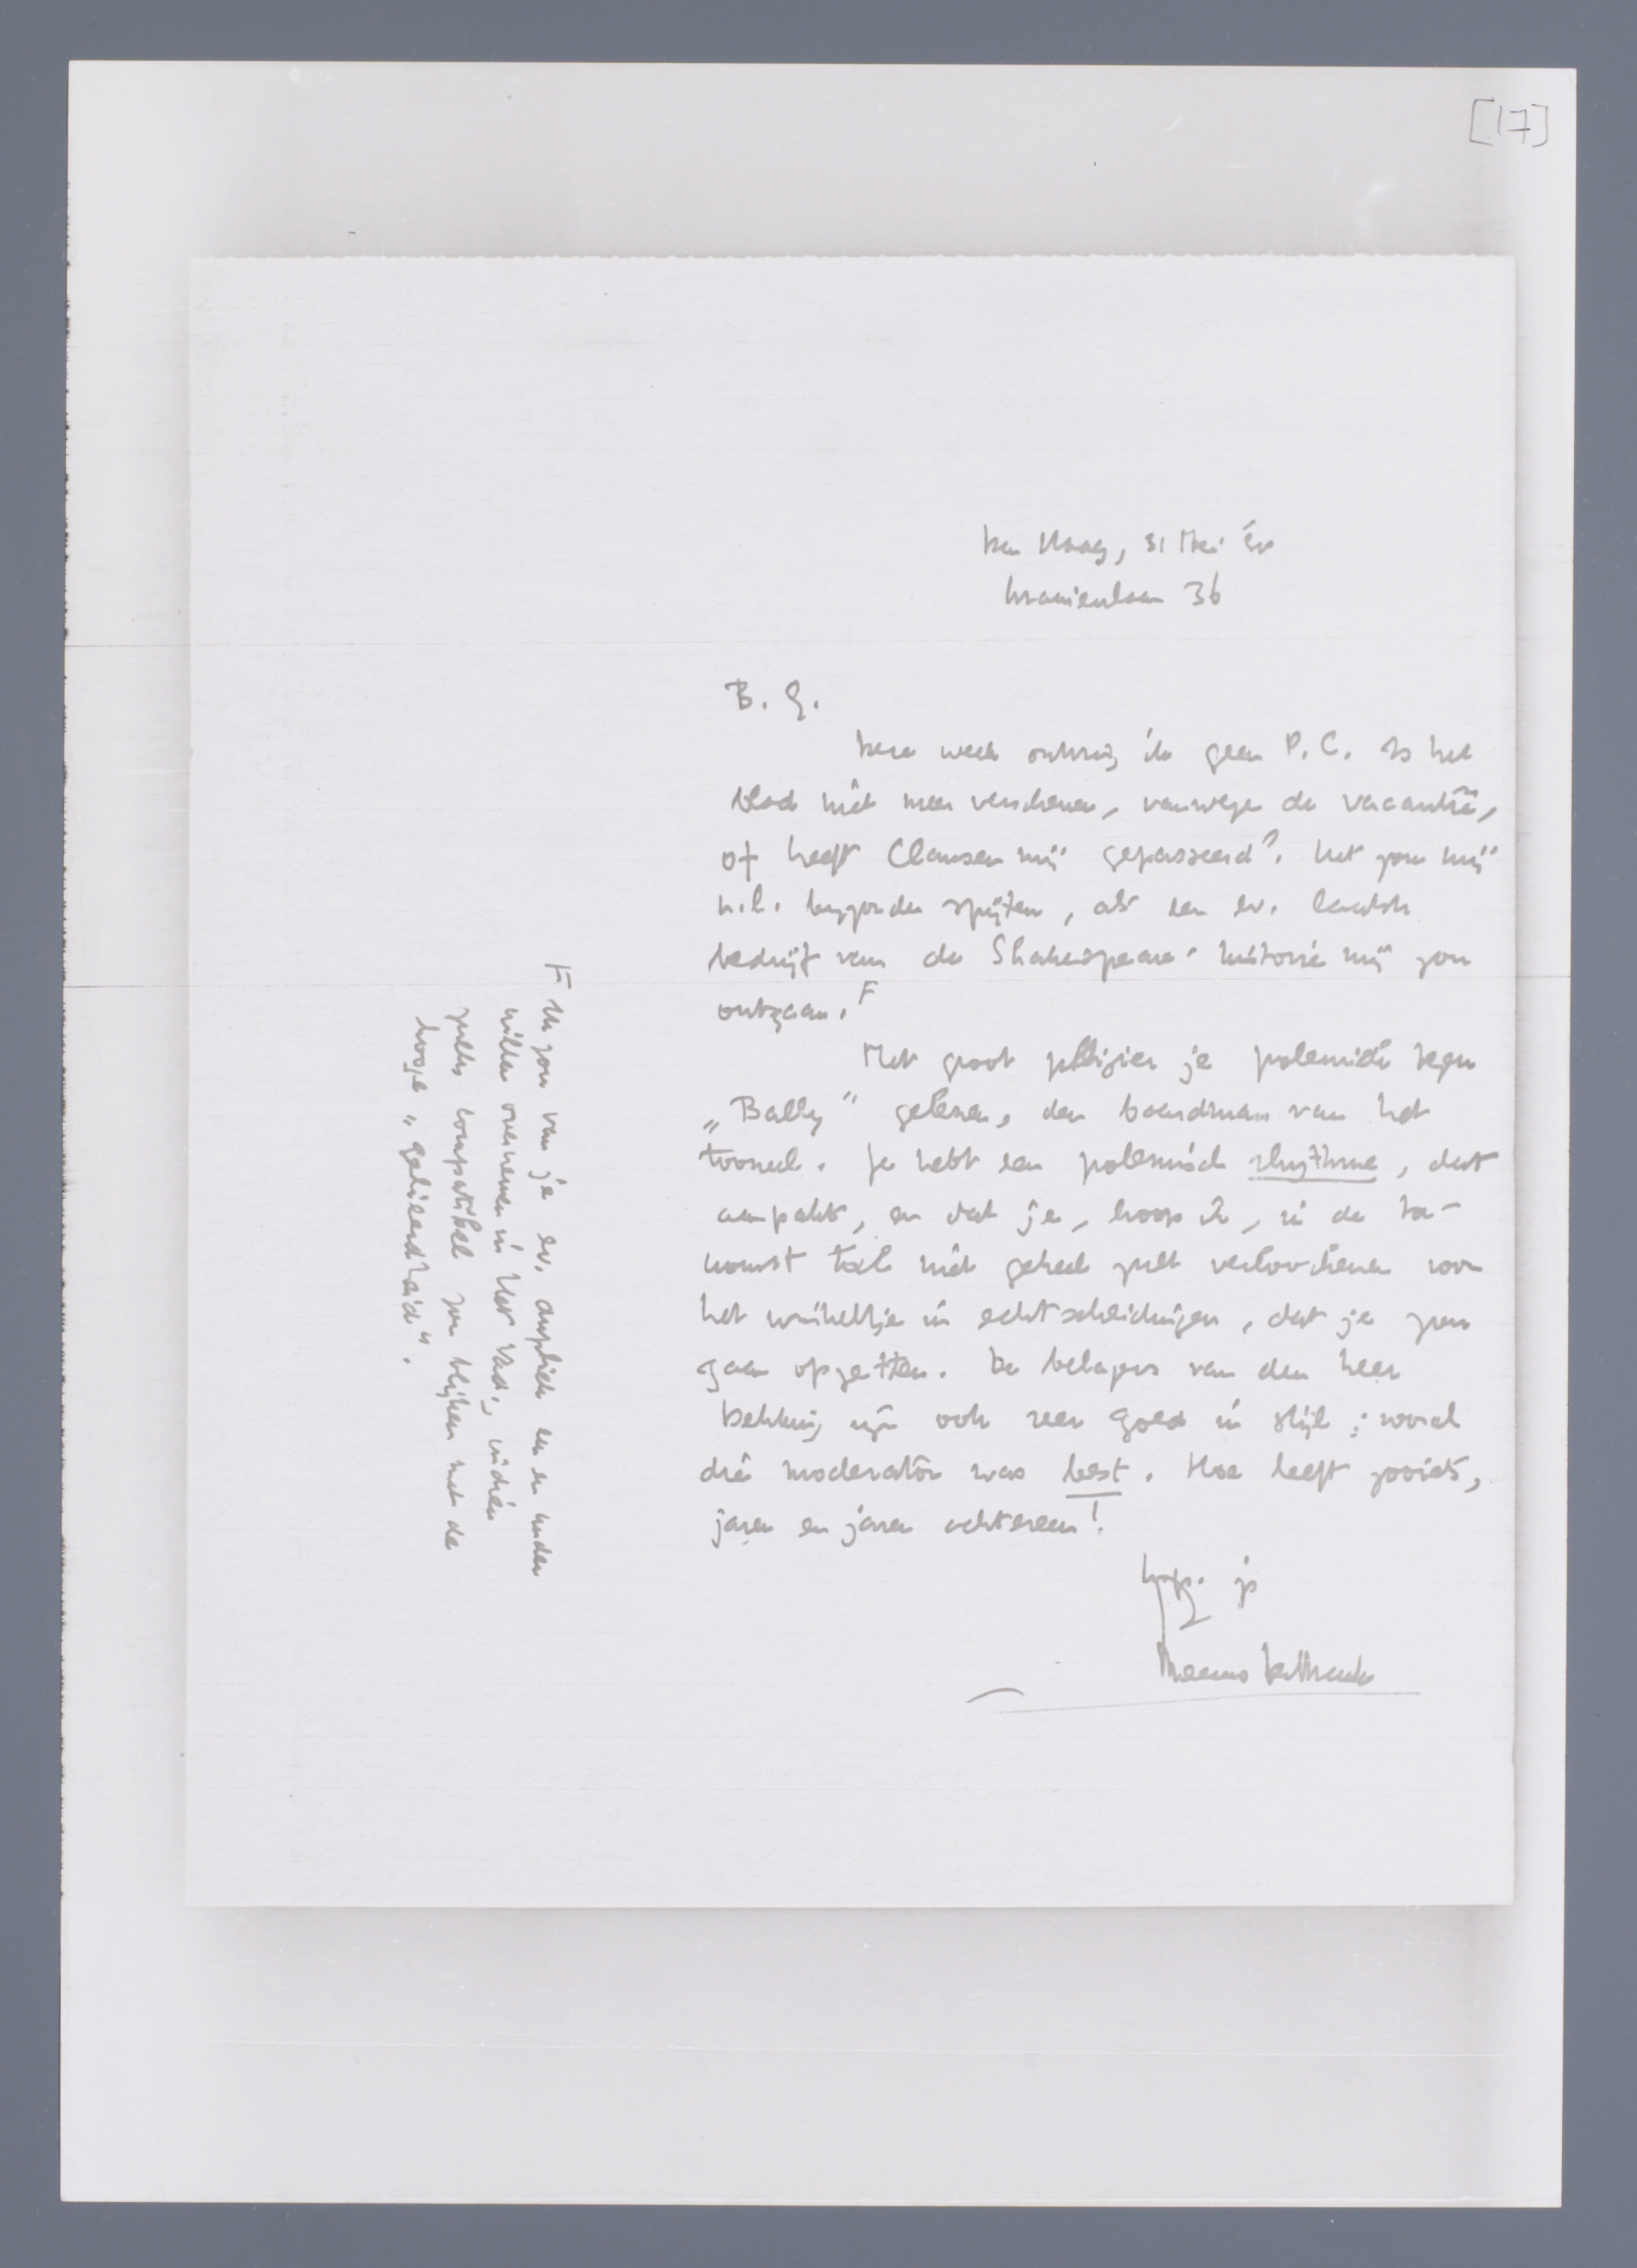 [17]
Den Haag, 31 Mei
36
B. G.
Deze week ontving ik geen P.C. Is het
blad niet meer verschenen, vanwege de vacantie,
of heeft Clausen mij gepasseerd? Het zou mij
n.l. byzonder spijten, als een ev. laatste
bedrijf van de Shakespeare-historie mij zou
ontgaan. F
Met groot plezier je polemiek tegen
„Bally” gelezen, den baardman van het
tooneel. Je hebt een polemisch rhythme, dat
aanpakt, en dat je, hoop ik, in de toe-
komst toch niet geheel zult verloochenen voor
het winkeltje in echtscheidingen, dat je zou
gaan opzetten. De van den heer
Dekking zijn ook zeer goed in stijl; vooral
die moderator was best. Hoe heeft zooiets,
jaren en jaren achtereen!
je
Menno ter Braak
F Ik zou van je ev. dupliek een en ander
willen overnemen in Het Vad., indien
zulks compatibel zou blijken met de
hooge „